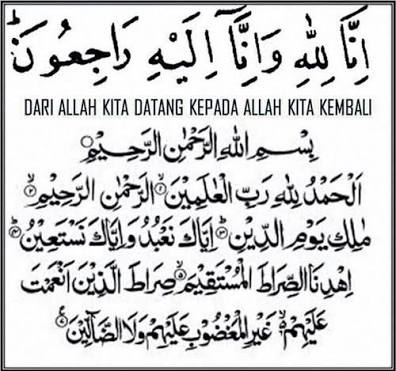 اِنَّا لِلّٰهِ وَاِنَّآ اِلَيْهِ رَاجِعُونَ
DARI ALLAH KITA DATANG KEPADA ALLAH KITA KEMBALI
بِسْمِ اللّٰهِ الرَّحْمٰنِ الرَّحِيْمِ ۝١
اَلْحَمْدُ لِلّٰهِ رَبِّ الْعٰلَمِيْنَ ۝٢ الرَّحْمٰنِ الرَّحِيْمِ ۝٣
مٰلِكِ يَوْمِ الدِّيْنِ ۝٤ اِيَّاكَ نَعْبُدُ وَاِيَّاكَ نَسْتَعِيْنُ ۝٥
اِهْدِنَا الصِّرَاطَ الْمُسْتَقِيْمَ ۝٦ صِرَاطَ الَّذِيْنَ اَنْعَمْتَ
عَلَيْهِمْ غَيْرِ الْمَغْضُوْبِ عَلَيْهِمْ وَلَا الضَّآلِّيْنَ ۝٧